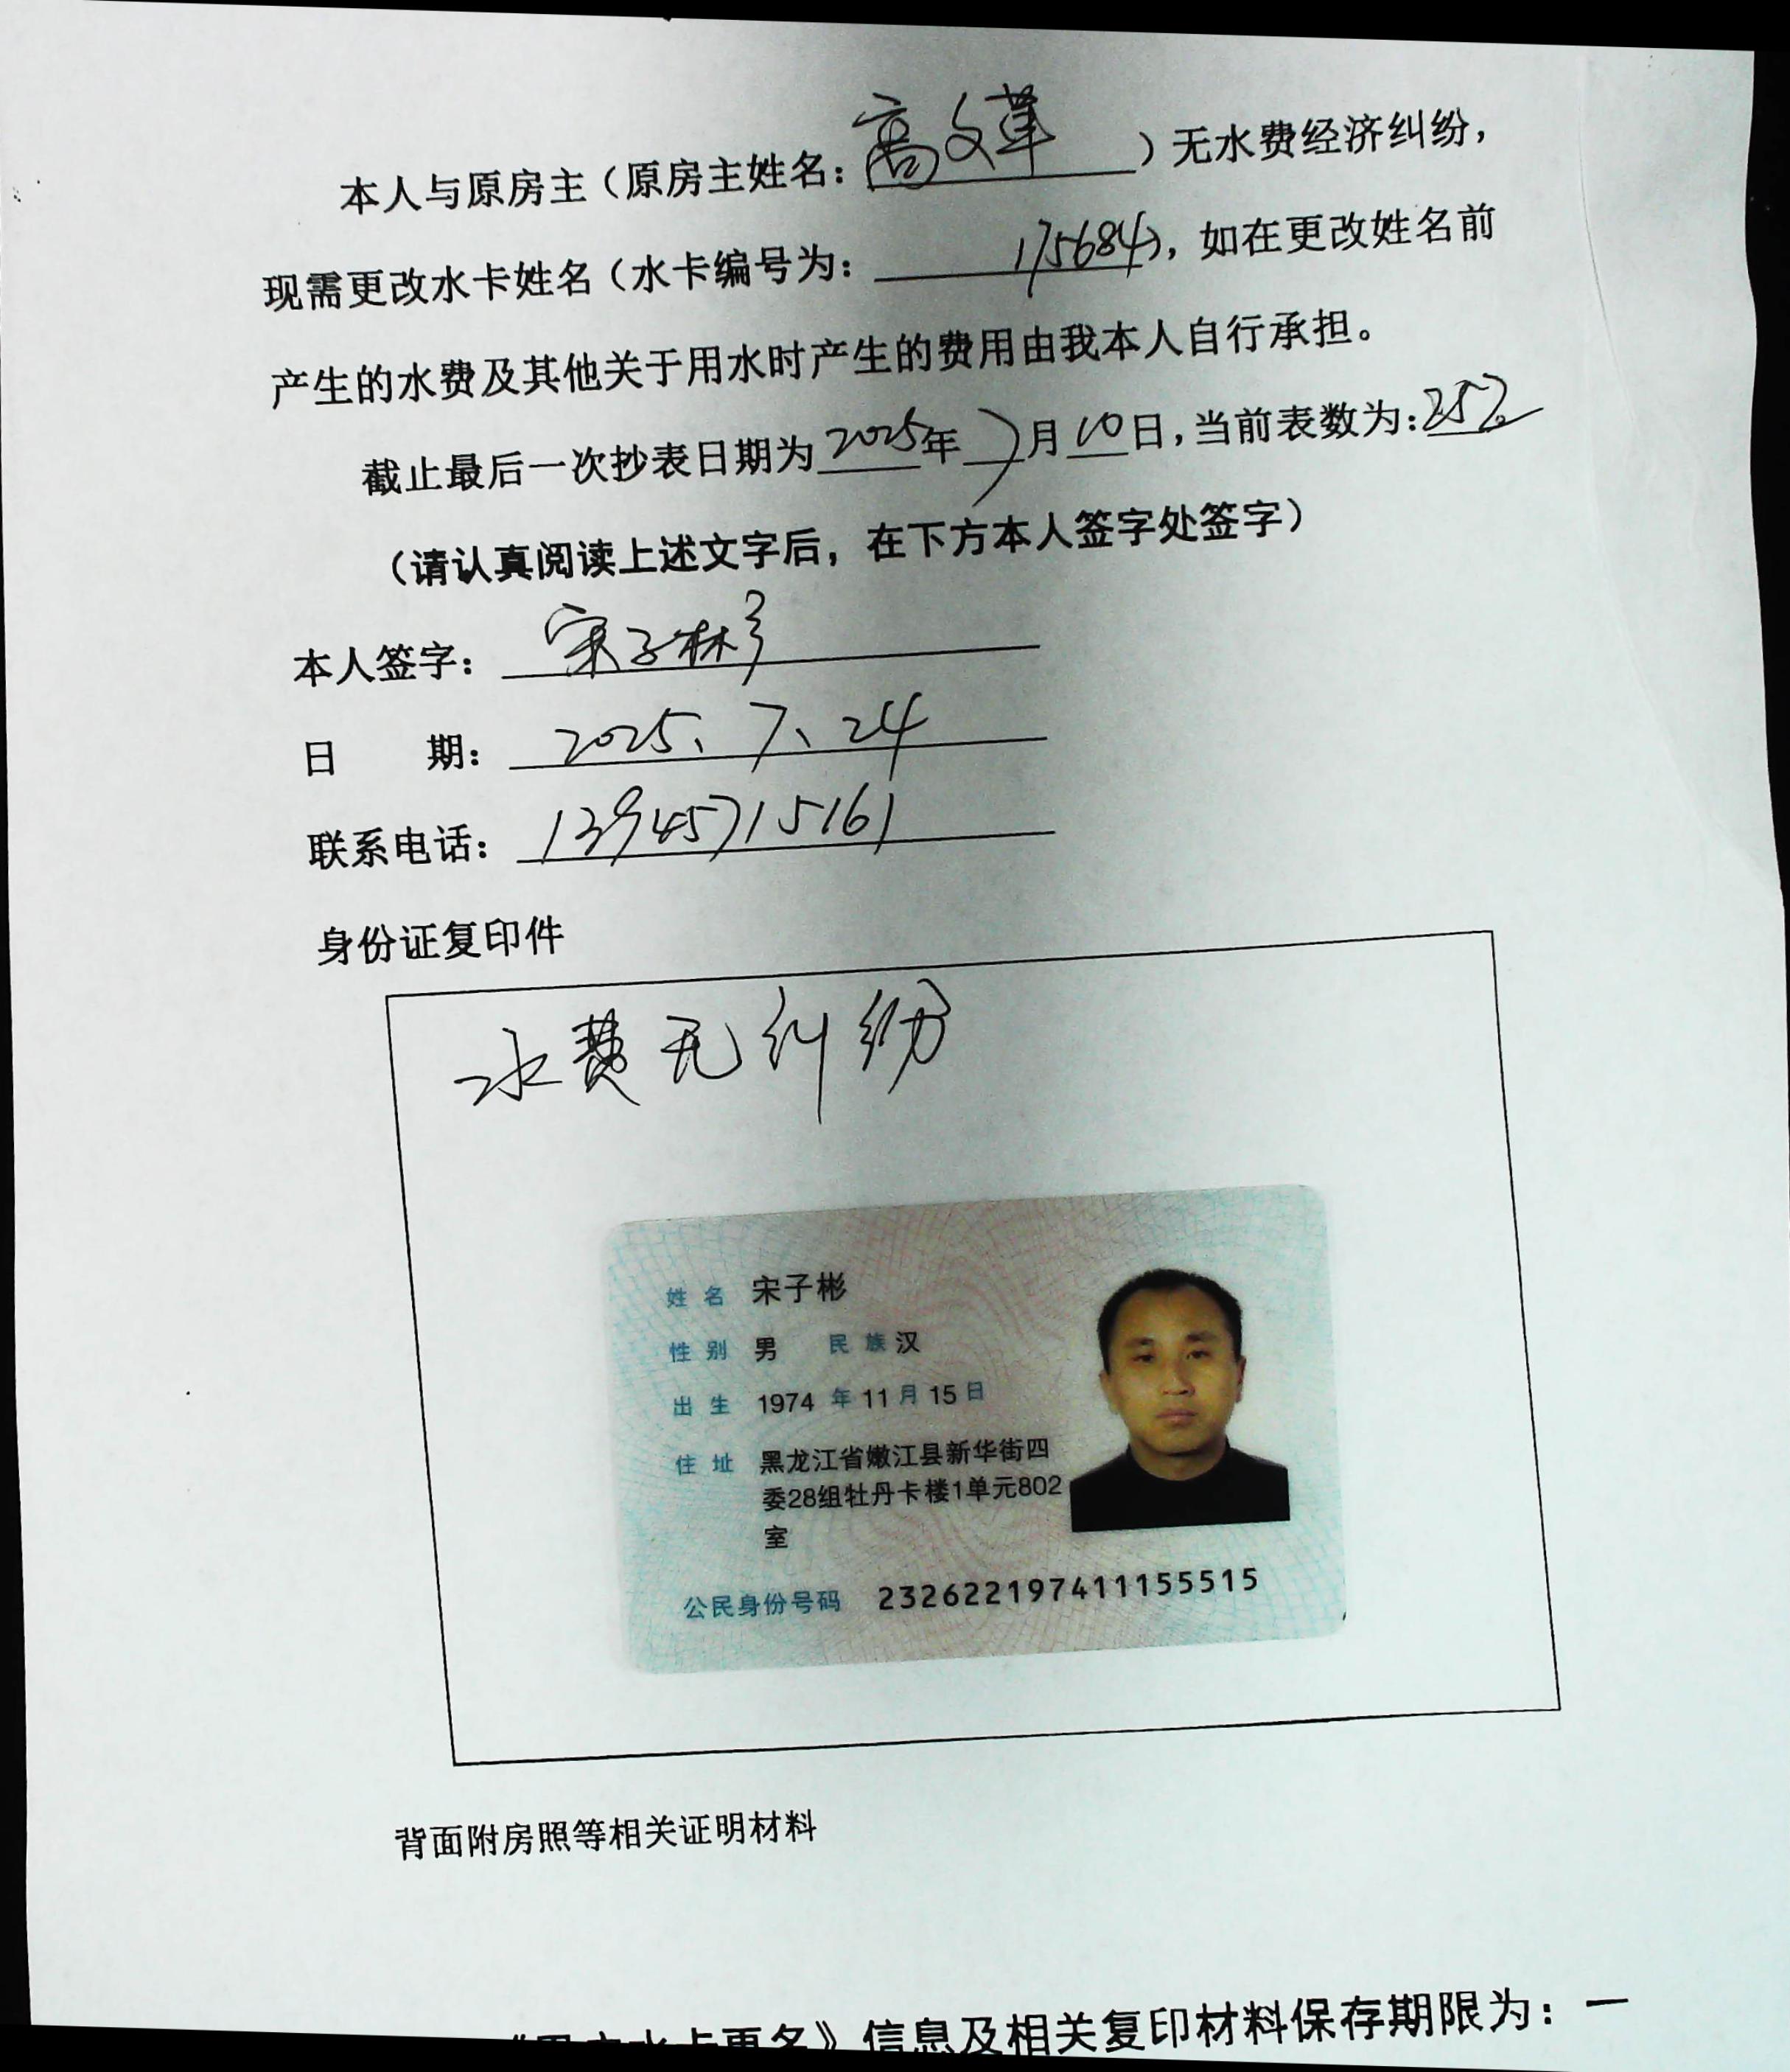 本人与原房主（原房主姓名：高文革）无水费经济纠纷，
现需更改水卡姓名（水卡编号为：175684），如在更改姓名前
产生的水费及其他关于用水时产生的费用由我本人自行承担。
截止最后一次抄表日期为2025年7月10日，当前表数为：252
（请认真阅读上述文字后，在下方本人签字处签字）
本人签字：宋子彬
日期：2025、7、24
联系电话：13945715161
身份证复印件
水费无纠纷
姓名 宋子彬
性别 男 民族 汉
出生 1974年11月15日
住址 黑龙江省嫩江县新华街四
委28组牡丹卡楼1单元802
室
公民身份号码 232622197411155515
背面附房照等相关证明材料
水卡更名》信息及相关复印材料保存期限为：一